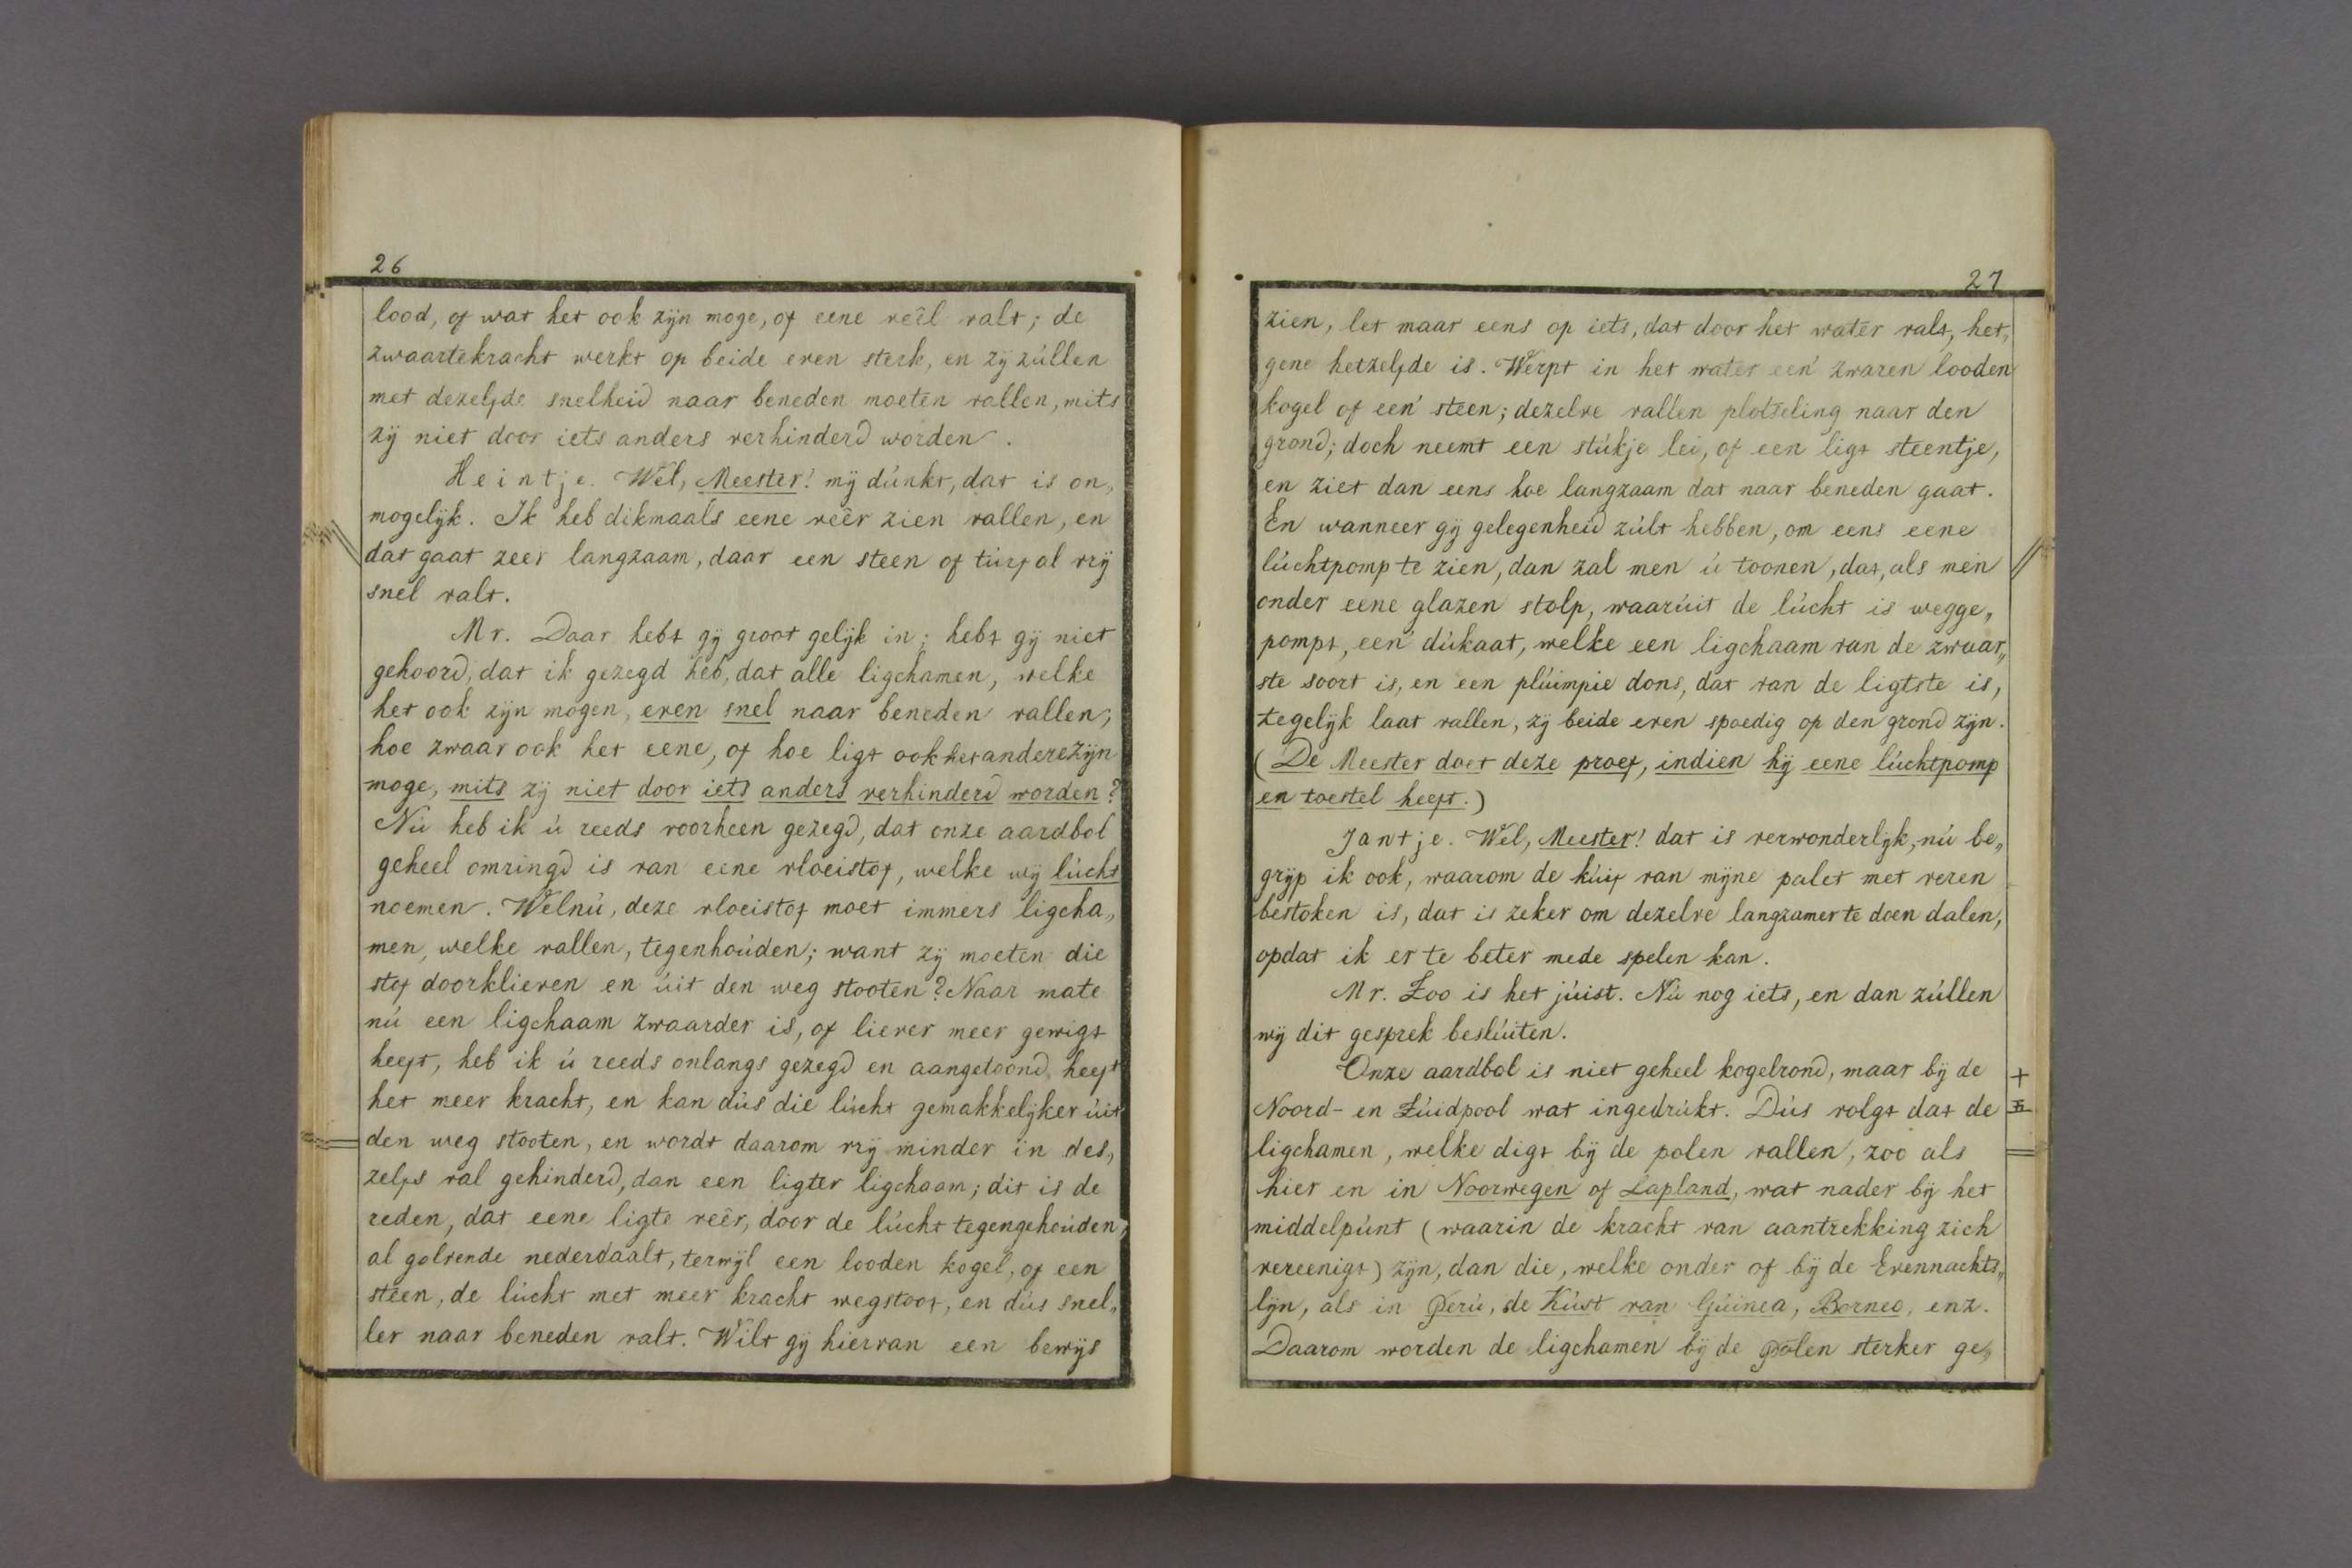 26
lood, of wat het ook zijn moge, of eene veêl valt; de
zwaartekracht werkt op beide even sterk, en zij zúllen
met dezelfde snelheid naar beneden moeten vallen, mits
zij niet door iets anders verhinderd worden.
Heintje. Wel, Meester! mij dúnkt, dat is on„
mogelijk. Ik heb dikmaals eene veêr zien vallen, en
dat gaat zeer langzaam, daar een steen of túrf al vrij
snel valt.
Mr. Daar hebt gij groot gelijk in; hebt gij niet
gehoord, dat ik gezegd heb, dat alle ligchamen, welke
het ook zijn mogen, even snel naar beneden vallen,
hoe zwaar ook het eene, of hoe ligt ook het andere zijn
moge, mits zij niet door iets anders verhinderd worden?
Nú heb ik ú reeds voorheen gezegd, dat onze aardbol
geheel omringd is van eene vloeistof, welke wij lúcht
noemen. Welnú, deze vloeistof moet immers ligcha„
men, welke vallen, tegenhoúden; want zij moeten die
stof doorklieven en úit den weg stooten? Naar mate
nú een ligchaam zwaarder is, of liever meer gewigt
heeft, heb ik ú reeds onlangs gezegd en aangetoond, heeft
het meer kracht, en kan dús die lúcht gemakkelijker úit
den weg stooten, en wordt daarom vrij minder in des„
zelfs val gehinderd, dan een ligter ligchaam; dit is de
reden, dat eene ligte veêr, door de lúcht tegengehoúden,
al golvende nederdaalt, terwijl een looden kogel, of een
steen, de lúcht met meer kracht wegstoot, en dús snel„
ler naar beneden valt. Wilt gij hiervan een bewijs
27
zien, let maar eens op iets, dat door het water valt, het„
gene hetzelfde is. Werpt in het water een' zwaren looden
kogel of een' steen; dezelve vallen plotseling naar den
grond; doch neemt een stúkje lei, of een ligt steentje,
en ziet dan eens hoe langzaam dat naar beneden gaat.
En wanneer gij gelegenheid zúlt hebben, om eens eene
lúchtpomp te zien, dan zal men ú toonen, dat, als men
onder eene glazen stolp, waarúit de lúcht is wegge„
pompt, een' dúkaat, welke een ligchaam van de zwaar„
ste soort is, en een plúimpie dons, dat van de ligtste is,
tegelijk laat vallen, zij beide even spoedig op den grond zijn.
(De Meester doet deze proef, indien hij eene lúchtpomp
en toestel heeft.)
Jantje. Wel, Meester! dat is verwonderlijk, nú be„
grijp ik ook, waarom de kúif van mijne palet met veren
bestoken is, dat is zeker om dezelve langzamer te doen dalen,
opdat ik er te beter mede spelen kan.
Mr. Zoo is het júist. Nú nog iets, en dan zúllen
wij dit gesprek beslúiten.
Onze aardbol is niet geheel kogelrond, maar bij de
Noord- en Zúidpool wat ingedrúkt. Dús volgt dat de
ligchamen, welke digt bij de polen vallen, zoo als
hier en in Noorwegen of Lapland, wat nader bij het
middelpúnt (waarin de kracht van aantrekking zich
vereenigt) zijn, dan die, welke onder of bij de Evennachts„
lijn, als in Perú, de Kúst van Gúinea, Borneo, enz.
Daarom worden de ligchamen bij de Polen sterker ge„